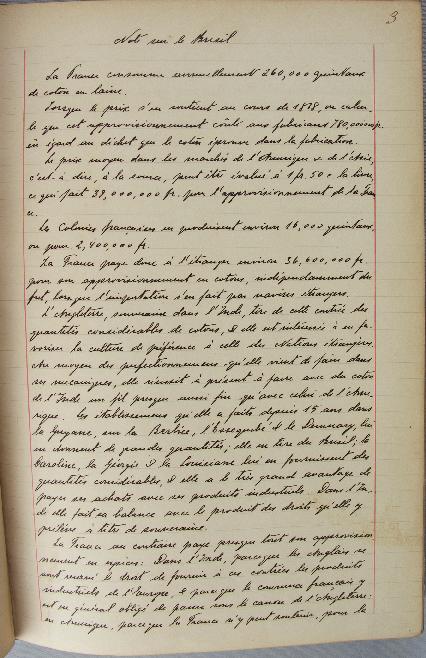 3
Note sur le Brésil
La France consomme annuellement 260,000 quintaux
de coton en laine.
Lorsque le prix s'en soutient au cours de 1818, on calcu-
le que cet approvisionnement coûte aux fabricans 780,000
en égard au déchet que le coton éprouve dans la fabrication.
Le prix moyen dans les marchés de l'Amérique et de l'Asie,
c'est à dire, à la source, peut être évalué à 1 fr. 50 c la livre,
ce qui fait 39,000,000 fr. pour l'approvisionnement de la Fran
ce.
Les Colonies françaises en produisent environ 16,000 quintaux,
ou pour 2,400,000 fr.
La France paye donc à l'étranger environ 36,600,000 fr.
pour son approvisionnement en cotons, indépendamment du
fret, lorsque l'importation s'en fait par navires étrangers.
L'Angleterre, souveraine dans l'Inde, tire de cette contrée des
quantités considérables de cotons, et elle est intéressée à en fa-
voriser la culture de préférence à celle des Nations étrangères.
Au moyen des perfectionnemens qu'elle vient de faire dans
ses mécaniques, elle réussit à présent à faire avec du coton
de l'Inde un fil presque aussi fin qu'avec celui de l'Amé-
rique. Les établissemens qu'elle a faits depuis 15 ans dans
la Guyane, sur la Berbice, l'Essequebo et le Demerary, lui
en donnent de grandes quantités; elle en tire du Brésil; la
Caroline, la Georgie et la Louisiane lui en fournissent des
quantités considérables, et elle a le très grand avantage de
payer ses achats avec ses produits industriels. Dans l'In-
de elle fait sa balance avec le produit des droits qu'elle y
prélève à titre de souveraine.
La France au contraire paye presque tout son approvision
nement en espèces: Dans l'Inde, parceque les Anglais se
sont réservé le droit de fournir à ces contrées les produits
industriels de l'Europe, et parceque le commerce français y
est en général obligé de passer sous le canon de l'Angleterre:
en Amérique, parceque la France n'y peut soutenir, pour la